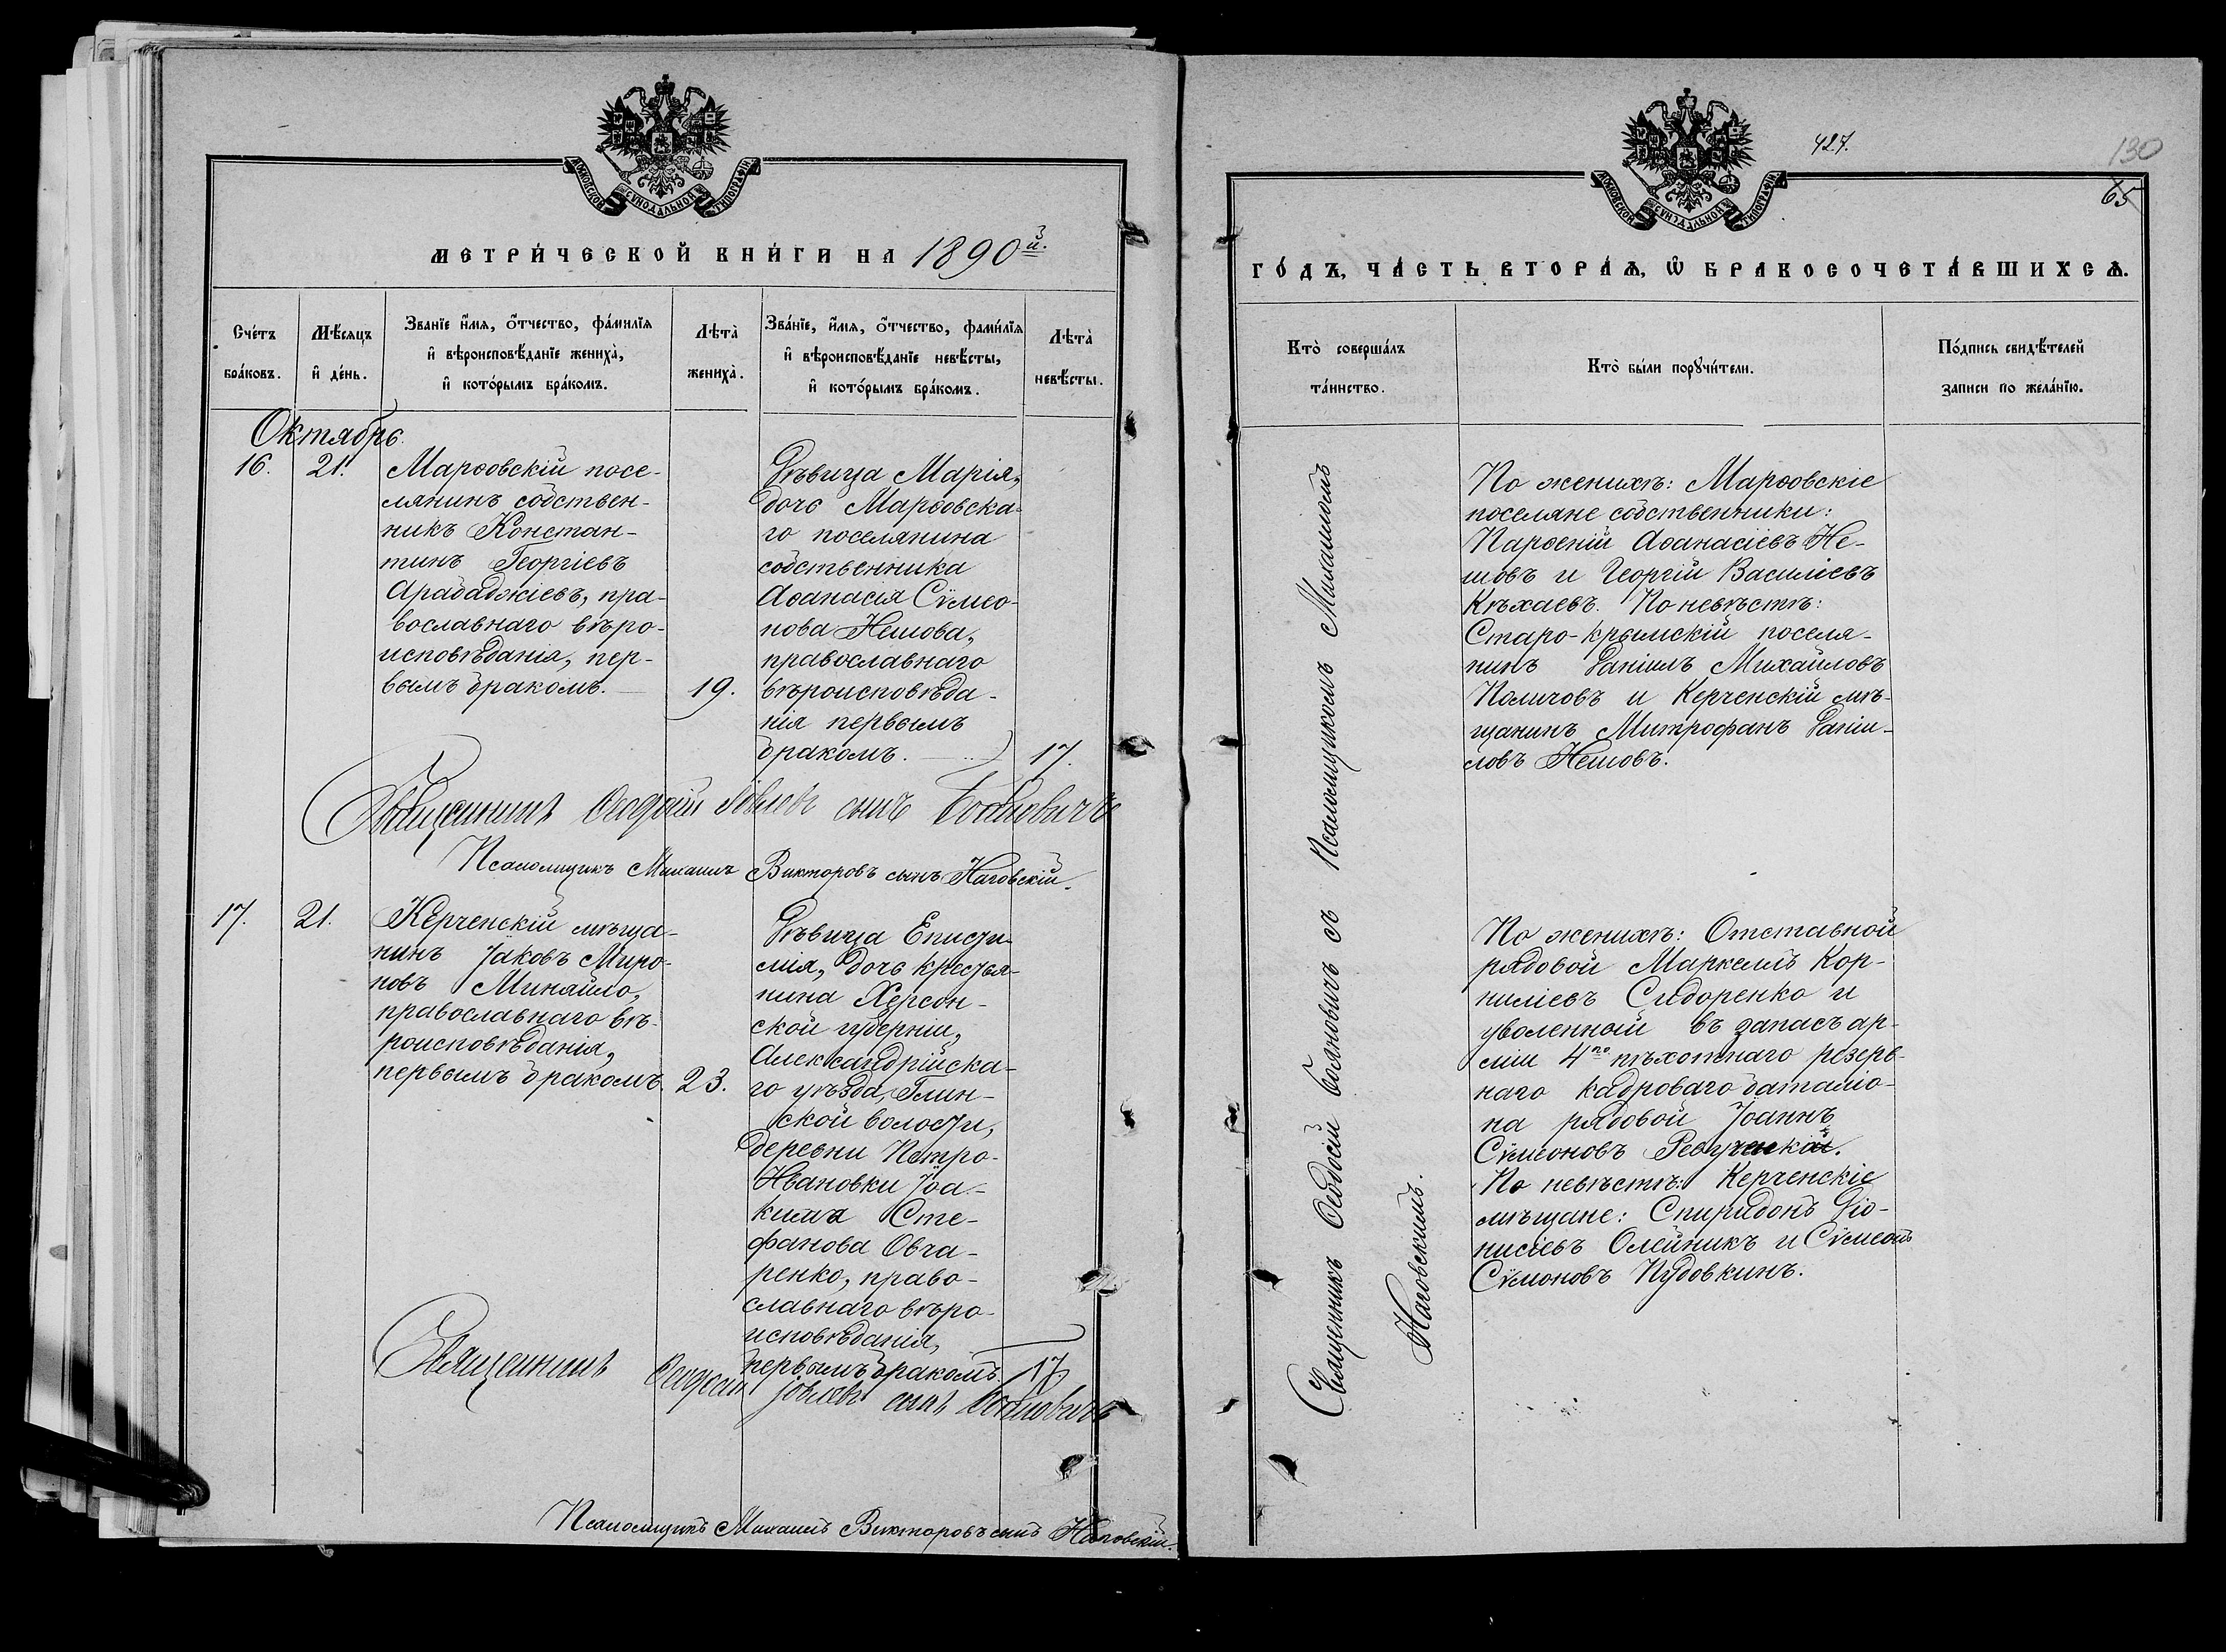 МОСКОВСКОЙ СѴНОДАЛЬНОЙ ТИПОГРАФІИ
МЕТРИ́ЧЕСКОЙ КНИ́ГИ НА 1890й.
Сче́тъ бра́ковъ.
Мѣ́сяцъ и҆ де́нь.
Зва́нїе и҆́мя, ѻ҆́тчество, фами́лїя
и҆ вѣроисповѣ́данїе жениха̀,
и҆ кото́рымъ бра́комъ.
Лѣта̀ жениха̀.
Зва́нїе, и҆́мя, ѻ҆́тчество, фами́лїя
и҆ вѣроисповѣ́данїе невѣ́сты,
и҆ кото́рымъ бра́комъ.
Лѣта̀ невѣ́сты.
Октябрь.
16.
21.
Марѳовскій посе-
лянинъ собствен-
никъ Констан-
тинъ Георгіевъ
Арабаджіевъ, пра-
вославнаго вѣро-
исповѣданія, пер-
вымъ бракомъ.
19.
Дѣвица Марія,
дочь Марѳовска-
го поселянина
собственника
Аѳанасія Сѵмео-
нова Нешова,
православнаго
вѣроисповѣда-
нія первымъ
бракомъ.
17.
Священникъ Ѳеодосій Іовлевъ сынъ Бояновичъ
Псаломщикъ Михаилъ Викторовъ сынъ Наговскій.
17.
21.
Керченскій мѣща-
нинъ Іаковъ Миро-
новъ Минайло,
православнаго вѣ-
роисповѣданія,
первымъ бракомъ.
23.
Дѣвица Еписти-
мія, дочь крестья-
нина Херсон-
ской губерніи,
Александрійска-
го уѣзда, Глин-
ской волости,
деревни Петро-
Ивановки Іоа-
кима Сте-
фанова Овча-
ренко, право-
славнаго вѣро-
исповѣданія,
первымъ бракомъ.
17.
Священникъ Ѳеодосій Іовлевъ сынъ Бояновичъ
Псаломщикъ Михаилъ Викторовъ сынъ Наговскій.
МОСКОВСКОЙ СѴНОДАЛЬНОЙ ТИПОГРАФІИ
427.
130
65
ГО́ДЪ, ЧА́СТЬ ВТОРА́Ѧ, Ѡ҆ БРАКОСОЧЕТА́ВШИХСѦ.
Кто̀ соверша́лъ
та́инство.
Кто̀ бы́ли порꙋчи́тели.
По́дпись свидѣ́телей
записи по жела́нїю.
Священникъ Ѳеодосій Бояновичъ съ Псаломщикомъ Михаиломъ
Наговскимъ.
По женихѣ: Марѳовскіе
поселяне собственники:
Парѳеній Аѳанасіевъ Не-
шовъ и Георгій Василіевъ
Кѣхаевъ. По невѣстѣ:
Старо-Крымскій поселя-
нинъ Даніилъ Михайловъ
Поличовъ и Керченскій мѣ-
щанинъ Митрофанъ Даніи-
ловъ Нешовъ.
По женихѣ: Отставной
рядовой Маркеллъ Кор-
ниліевъ Сидоренко и
уволенный въ запасъ ар-
міи 4го пѣхотнаго резерв-
наго кадроваго баталіо-
на рядовой Іоаннъ
Сѵмеоновъ
По невѣстѣ: Керченскіе
мѣщане: Спиридонъ Діо-
нисіевъ Олейникъ и Сѵмеонъ
Сѵмоновъ Пудовкинъ.